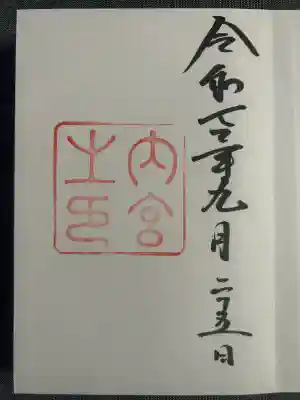 令和年九月二十五日
内宮
之印